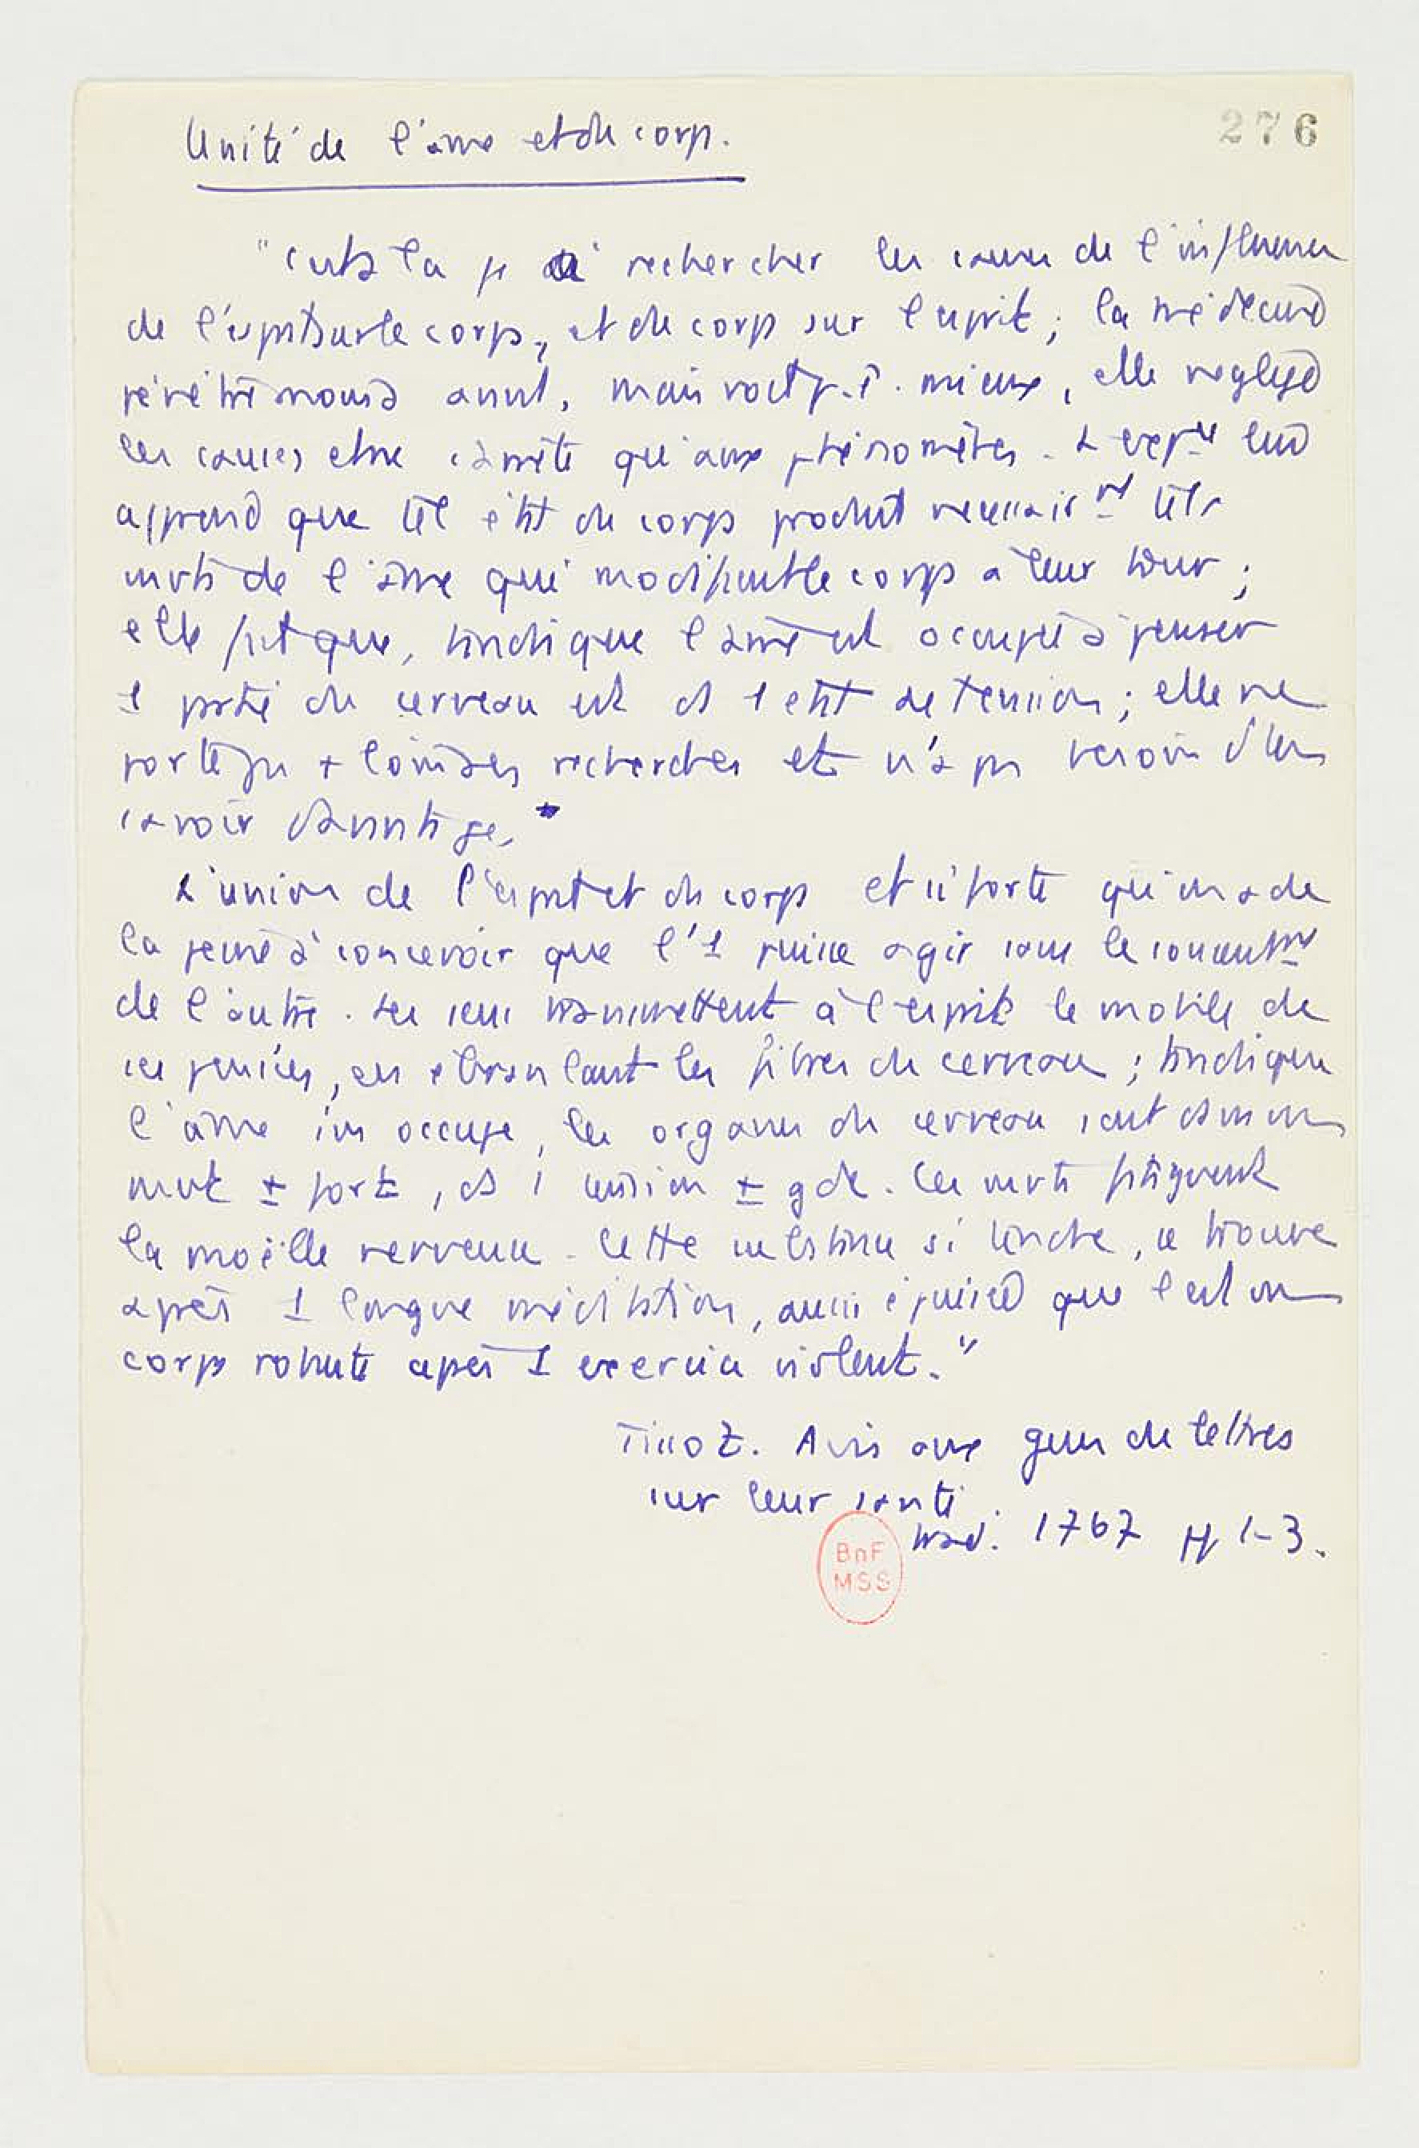 Unité de l'âme et du corps.
276
"
rechercher les causes de l'influence
de l'esprit sur le corps, et du corps sur l'esprit ; la médecine
mais voit p. ê. mieux, elle néglige
les causes et ne s'arrête qu'aux phénomènes. L'expce lui
apprend que tel état du corps produit nécessairnt tels
mvts de l'âme qui modifient le corps à leur tour ;
elle sait que, tandis que l'âme est occupée à penser
1 partie du cerveau est ds 1 état de tension ; elle ne
porte pas + loin ses recherches et n'a pas besoin d'en
savoir davantage."
L'union de l'esprit et du corps est si forte qu'on a de
la peine à concevoir que l'1 puisse agir sans le consentmt
de l'autre. Les sens transmettent à l'esprit le mobile de
ses pensées, en ébranlant les fibres du cerveau ; tandis que
l'âme s'en occupe, les organes du cerveau sont dans un
mvt ± fort, ds 1 tension ± gde. Ces mvts fatiguent
la moëlle nerveuse. Cette substance si tendre, se trouve
après 1 longue méditation, aussi épuisée que l'est un
corps robuste après 1 exercice violent."
Tissot. Avis aux gens de lettres
sur leur santé
trad. 1767 pp 1-3.
BnF
MSS